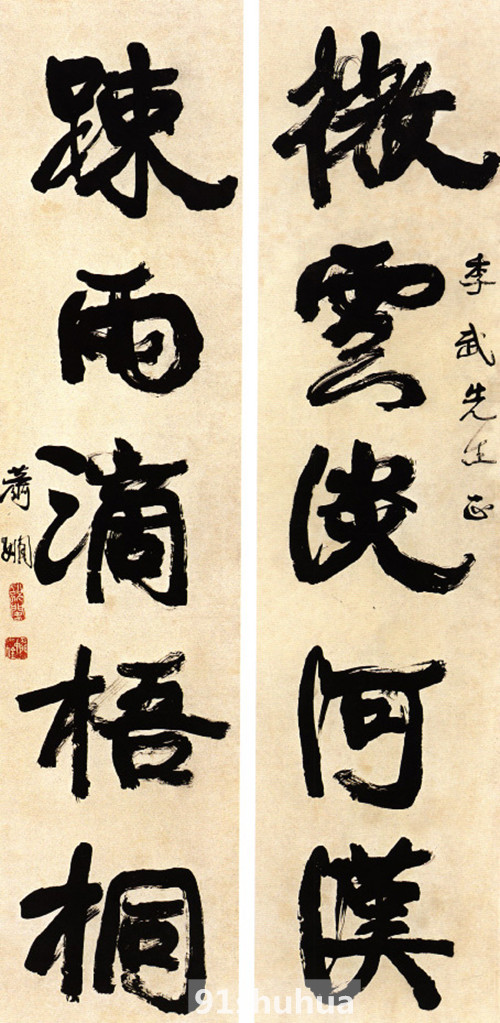 微雲淡河漢
李武先生正
踈雨滴梧桐
蕭嫻
91shuhua